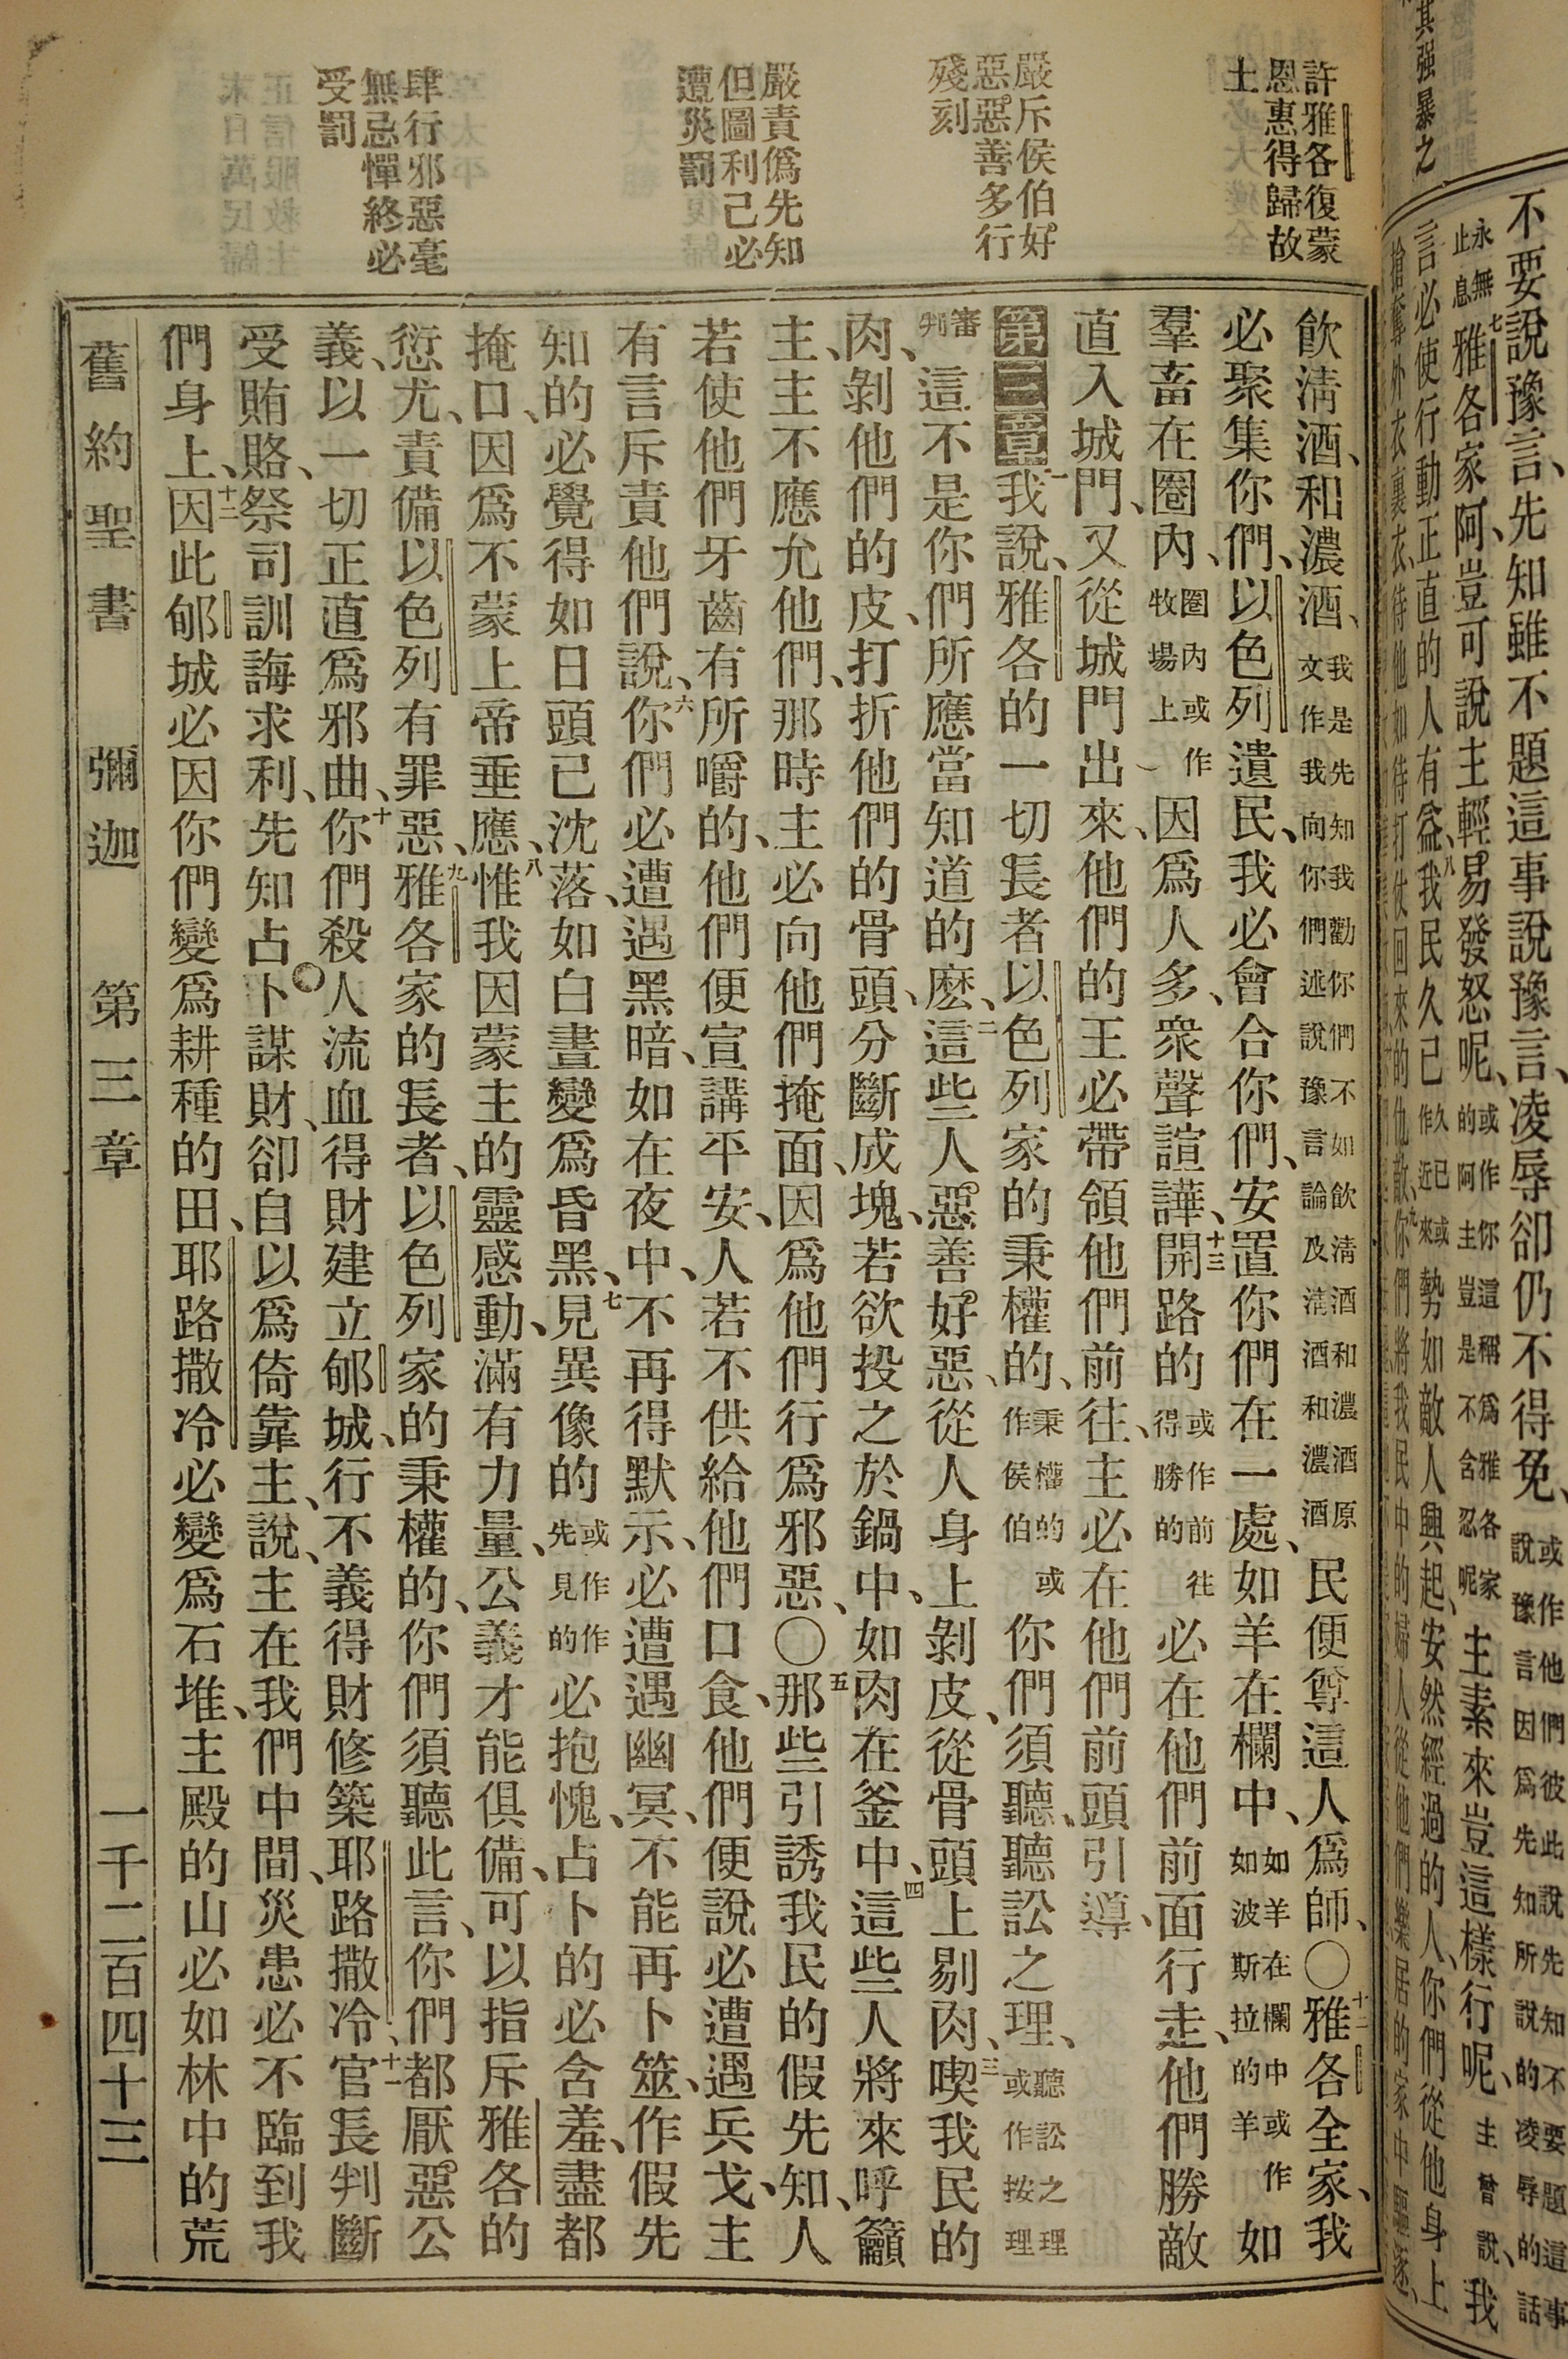 不要說豫言、先知雖不題這事說豫言、凌辱卻仍不得免、或作他們彼此說先知不要題這事說豫言因爲先知所說的凌辱的話
永無止息七雅各家阿、豈可說主輕易發怒呢、或作你這稱爲雅各家的阿主豈是不含忍呢主素來豈這樣行呢、主曾說、我
言必使行動正直的人有益、八我民久已久已或作近來勢如敵人興起、安然經過的人、你們從他身上
其强暴之
許雅各復蒙
恩惠得歸故
土
嚴斥侯伯好
惡惡善多行
殘刻
嚴責僞先知
但圖利己必
遭災罰
肆行邪惡毫
無忌憚終必
受罰
飲淸酒、和濃酒、我是先知我勸你們不如飲淸酒和濃酒原文作我向你們述說豫言論及淸酒和濃酒民便尊這人爲師、〇十二雅各全家、我
必聚集你們、以色列遺民、我必會合你們、安置你們在一處、如羊在欄中、如羊在欄中或作如波斯拉的羊如
羣畜在圈內、圈內或作牧場上因爲人多、衆聲諠譁、十三開路的或作前往得勝的必在他們前面行走、他們勝敵
直入城門、又從城門出來、他們的王必帶領他們前往、主必在他們前頭引導、
第三章一我說、雅各的一切長者以色列家的秉權的、秉權的或作侯伯你們須聽、聽訟之理、聽訟之理或作按理
審判這不是你們所應當知道的麽、二這些人惡善好惡、從人身上剝皮、從骨頭上剔肉、三喫我民的
肉、剝他們的皮、打折他們的骨頭、分斷成塊、若欲投之於鍋中、如肉在釜中、四這些人將來呼籲
主、主不應允他們、那時主必向他們掩面、因爲他們行爲邪惡、〇五那些引誘我民的假先知、人
若使他們牙齒有所嚼的、他們便宣講平安、人若不供給他們口食、他們便說必遭遇兵戈、主
有言斥責他們說、六你們必遭遇黑暗、如在夜中、不再得默示、必遭遇幽冥、不能再卜筮、作假先
知的必覺得如日頭已沈落、如白晝變爲昏黑、七見異像的或作作先見的必抱愧、占卜的必含羞、盡都
掩口、因爲不蒙上帝垂應、八惟我因蒙主的靈感動、滿有力量、公義才能俱備、可以指斥雅各的
愆尤、責備以色列有罪惡、九雅各家的長者、以色列家的秉權的、你們須聽此言、你們都厭惡公
義、以一切正直爲邪曲、十你們殺人流血得財建立郇城、行不義得財修築耶路撒冷、十一官長判斷
受賄賂、祭司訓誨求利、先知占卜謀財、卻自以爲倚靠主、說、主在我們中間、災患必不臨到我
們身上、十二因此郇城必因你們變爲耕種的田、耶路撒冷必變爲石堆、主殿的山必如林中的荒
舊約聖書　彌迦　第三章　一千二百四十三